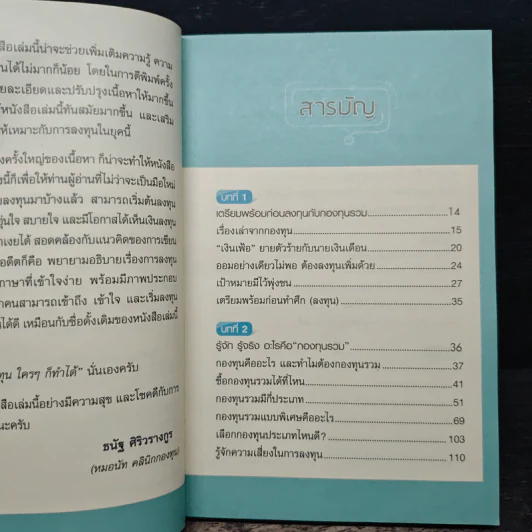 สือเล่มนี้น่าจะช่วยเพิ่มเติมความรู้ ความ
นได้ไม่มากก็น้อย โดยในการตีพิมพ์ครั้ง
ยละเอียดและปรับปรุงเนื้อหาให้มากขึ้น
ห้หนังสือเล่มนี้ทันสมัยมากขึ้น และเสริม
ให้เหมาะกับการลงทุนในยุคนี้
งครั้งใหญ่ของเนื้อหา ก็น่าจะทำให้หนังสือ
งนี้ก็เพื่อให้ท่านผู้อ่านที่ไม่ว่าจะเป็นมือใหม่
ยลงทุนมาบ้างแล้ว สามารถเริ่มต้นลงทุน
อุ่นใจ สบายใจ และมีโอกาสได้เห็นเงินลงทุน
าเงยได้ สอดคล้องกับแนวคิดของการเขียน
อดีตก็คือ พยายามอธิบายเรื่องการลงทุน
ภาษาที่เข้าใจง่าย พร้อมมีภาพประกอบ
กคนสามารถเข้าถึง เข้าใจ และเริ่มลงทุน
ได้ดี เหมือนกับชื่อดั้งเดิมของหนังสือเล่มนี้
ทุน ใครๆ ก็ทำได้” นั่นเองครับ
สือเล่มนี้อย่างมีความสุข และโชคดีกับการ
นะครับ
ธนัฐ ศิริวรางกูร
(หมอนัท คลินิกกองทุน)
สารบัญ
บทที่ 1
เตรียมพร้อมก่อนลงทุนกับกองทุนรวม 14
เรื่องเล่าจากกองทุน 15
“เงินเฟ้อ” ยายตัวร้ายกับนายเงินเดือน 20
ออมอย่างเดียวไม่พอ ต้องลงทุนเพิ่มด้วย 24
เป้าหมายมีไว้พุ่งชน 27
เตรียมพร้อมก่อนทำศึก (ลงทุน) 35
บทที่ 2
รู้จัก รู้จริง อะไรคือ“กองทุนรวม” 36
กองทุนคืออะไร และทำไมต้องกองทุนรวม 37
ซื้อกองทุนรวมได้ที่ไหน 41
กองทุนรวมมีกี่ประเภท 51
กองทุนรวมแบบพิเศษคืออะไร 69
เลือกกองทุนประเภทไหนดี? 103
รู้จักความเสี่ยงในการลงทุน 110